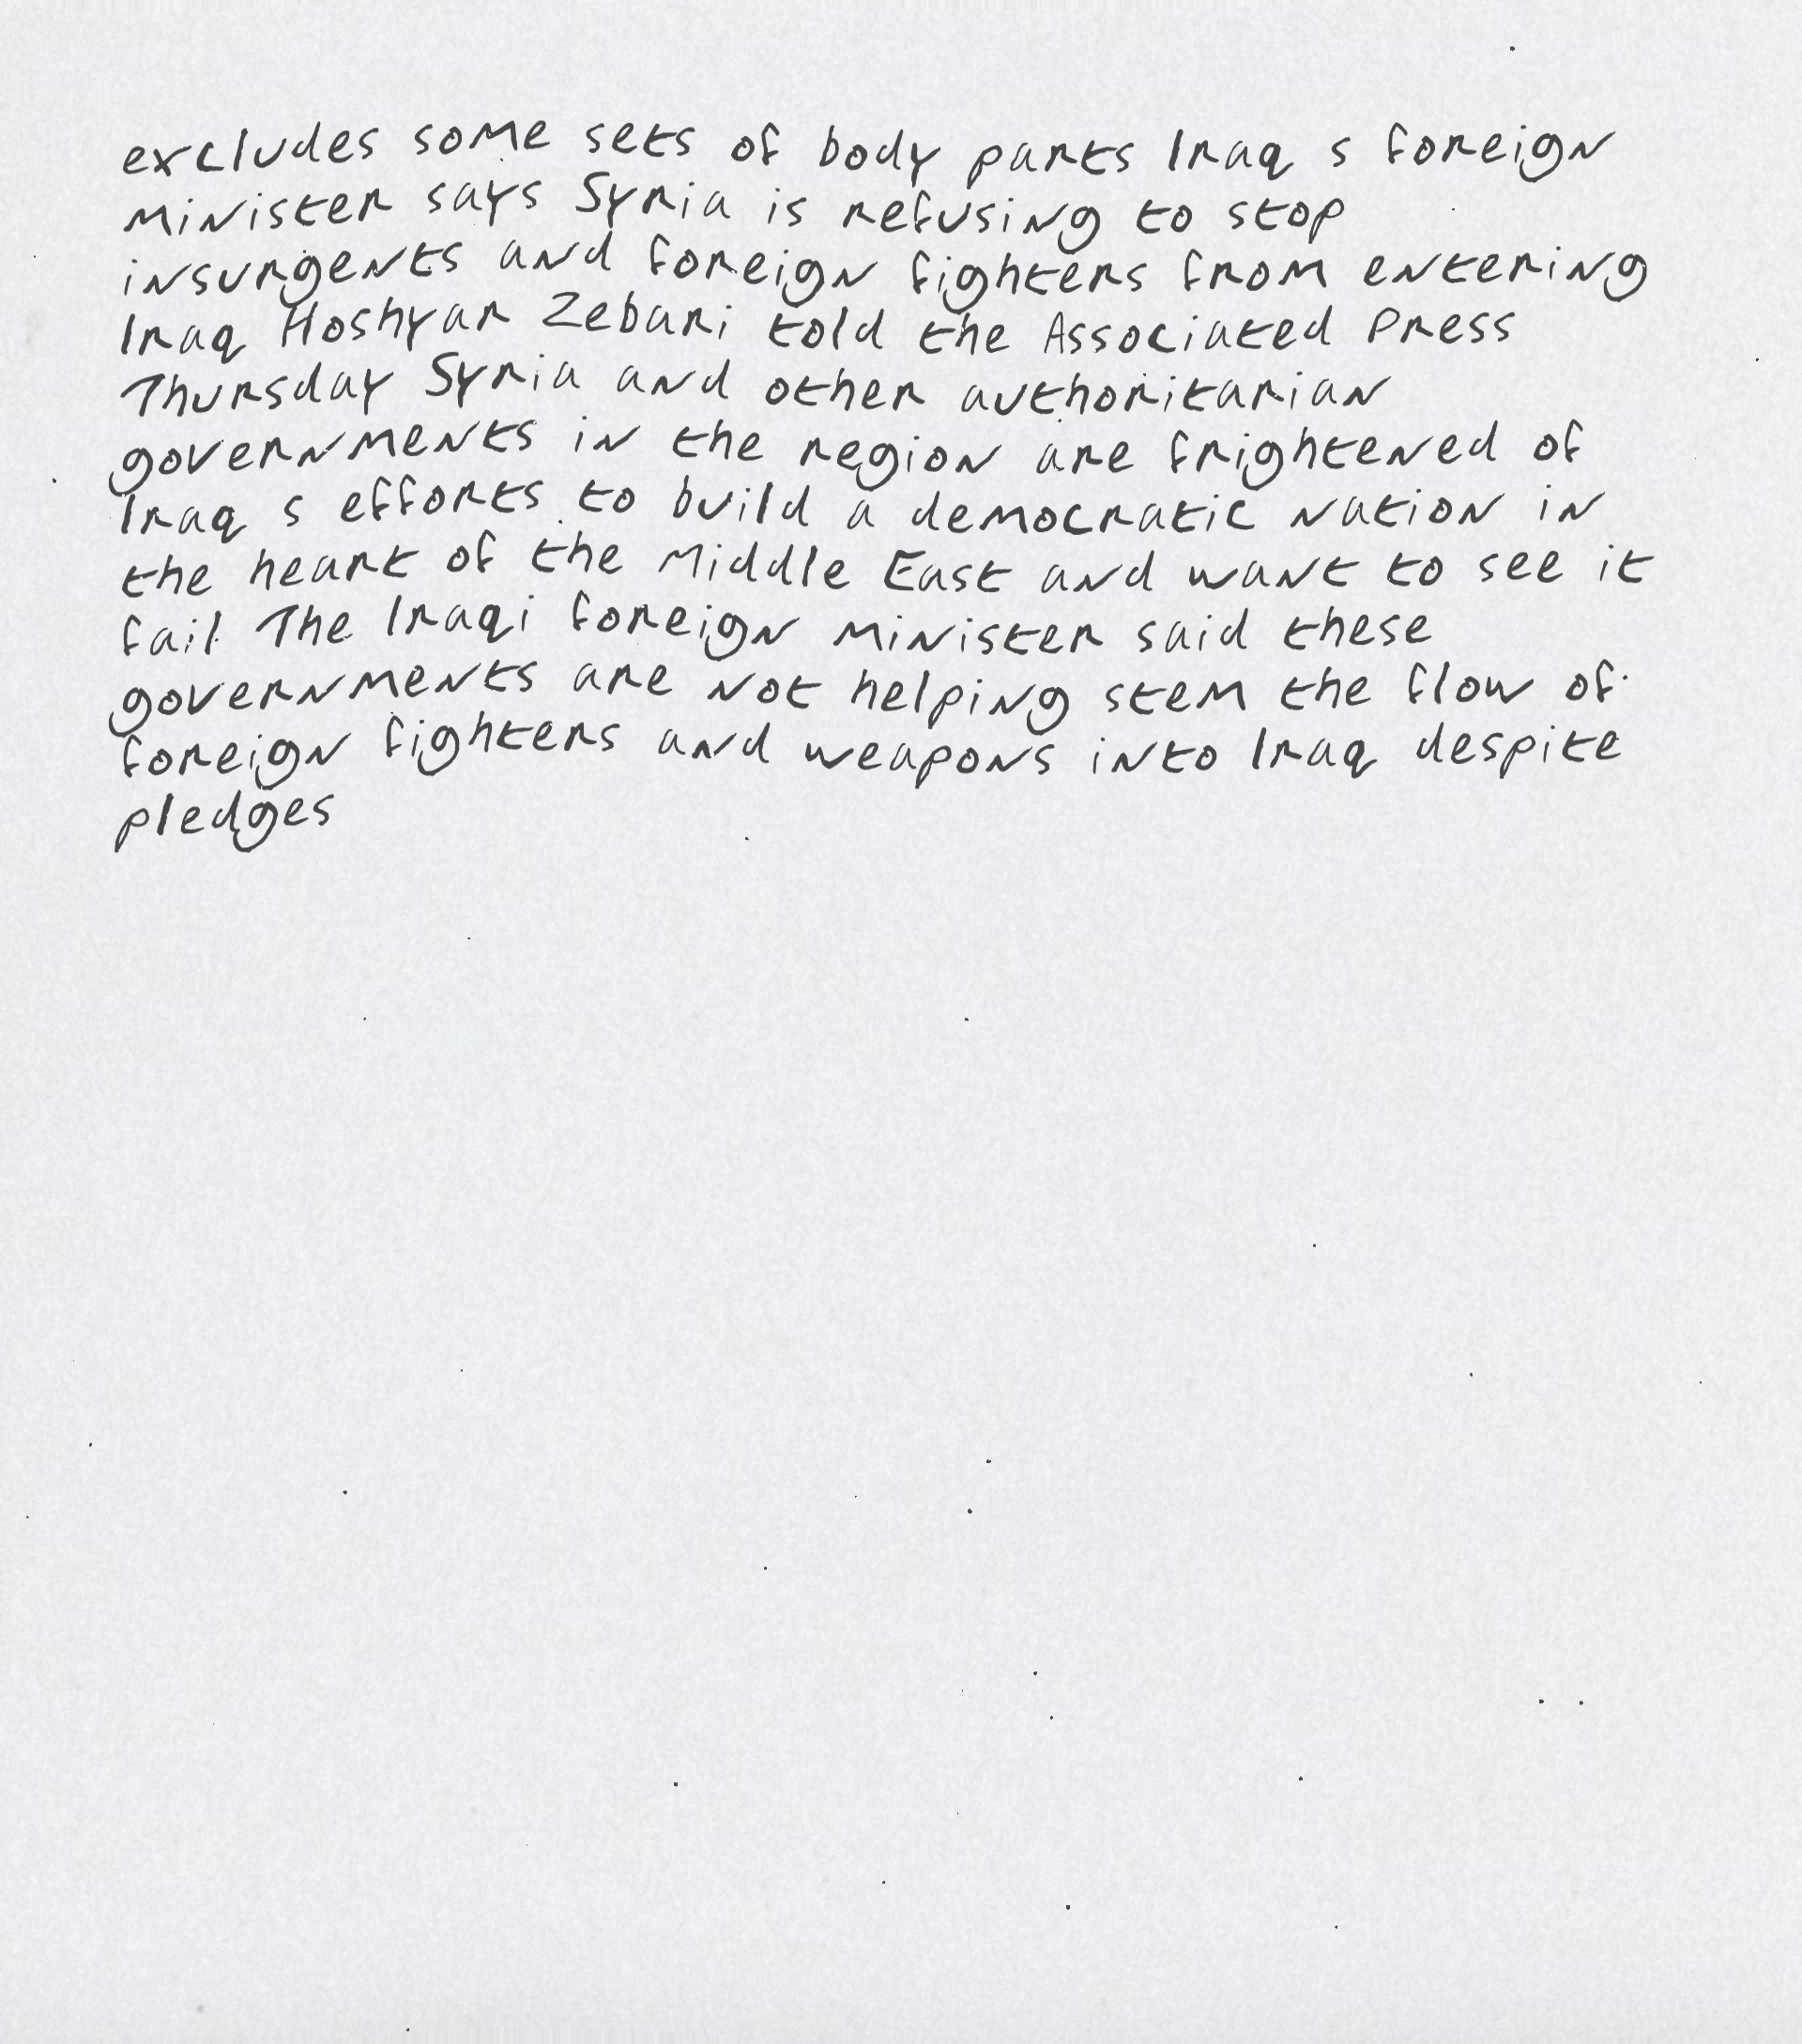 excludes some sets of body parts Iraq s foreign
minister says Syria is refusing to stop
insurgents and foreign fighters from entering
Iraq Hoshyar Zebari told the Associated Press
Thursday Syria and other authoritarian
governments in the region are frightened of
Iraq s efforts to build a democratic nation in
the heart of the Middle East and want to see it
fail The Iraqi foreign minister said these
governments are not helping stem the flow of
foreign fighters and weapons into Iraq despite
pledges